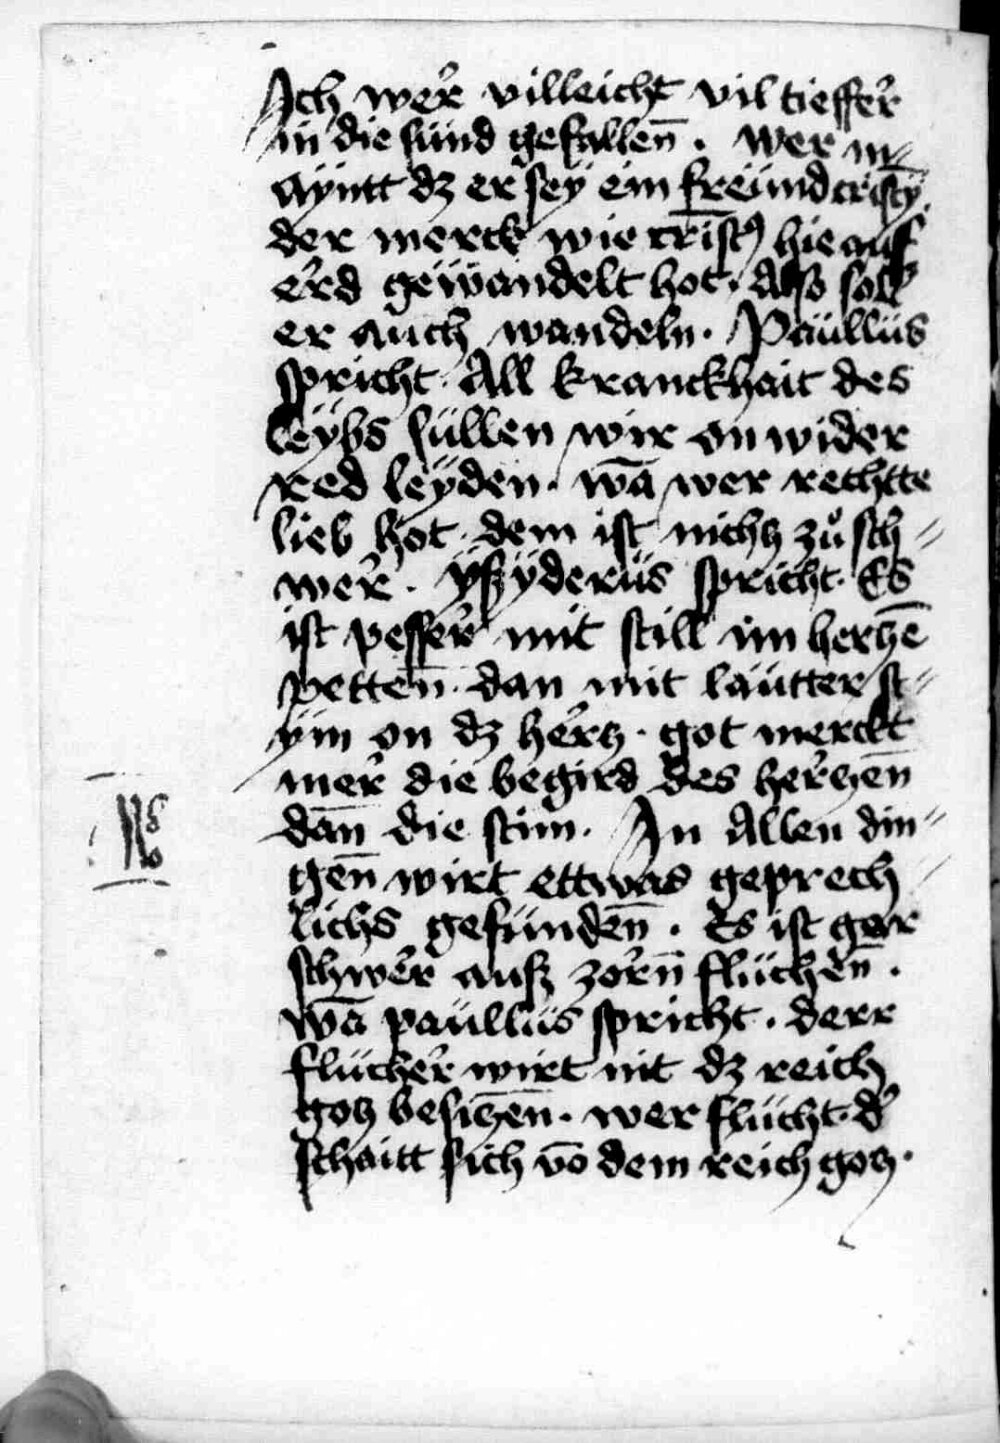 Ich wer villeicht vil tieffer
in die sünd gefallen̄ . wer m⸗
aÿntt dz er seÿ ein freünd cristÿ .
der merck wie cristꝰ hie auf
erd gewandelt hot . Also soll
er auch wandeln . Paüllüs
spricht . All kranckhait des
leÿbs süllen wir on wider
red leÿden . wā wer rechtte
lieb hot . dem ist nichtz zů sch⸗
wer . ÿsÿderüs spricht . Es
ist pesser mit still im hertzē
petten̄ . dan mit laütter st⸗
ÿm on dz hertz . got merckt
mer die begird des hertzen̄
dan̄ die stim . In Allen din⸗
gen̄ wirt ettwas geprech⸗
lichs gefünden̄ . Es ist gar
schwer auß zorn̄ flüchen̄ .
wā paüllüs spricht . derr
flücher wirt nit dz reich
gotz besitzen̄ . wer flücht . d'
schaitt sich vō dem reich gotz .